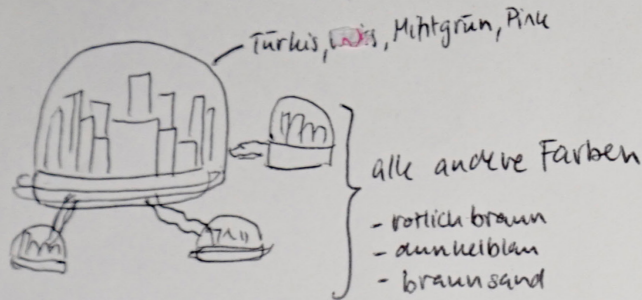 Türkis, Mintgrün, Pink
alle andere Farben
- rötlich braun
- dunkelblau
- braunsand